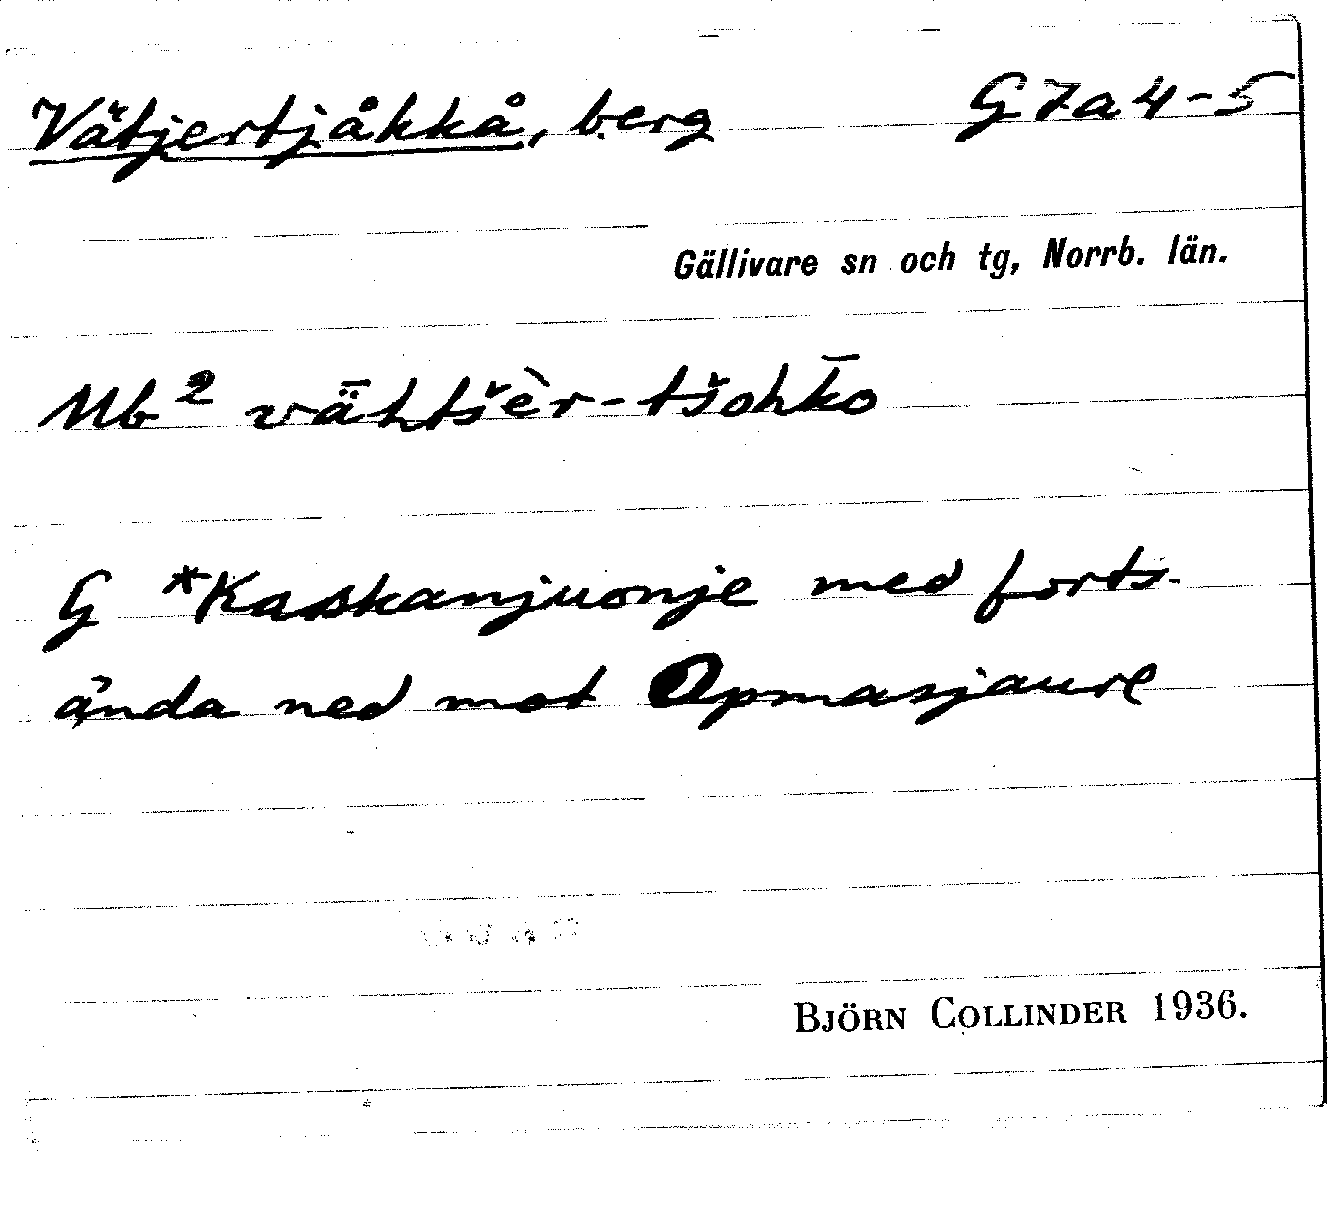 Vätjertjåkkå, berg G7a4-5
Gällivare sn och tg, Norrb. län.
Mb² vǟhtšèr-tšohk̄o
G *Kaskanjuonje med forts.
ända ned mot Opmasjaure
BJÖRN COLLINDER 1936.